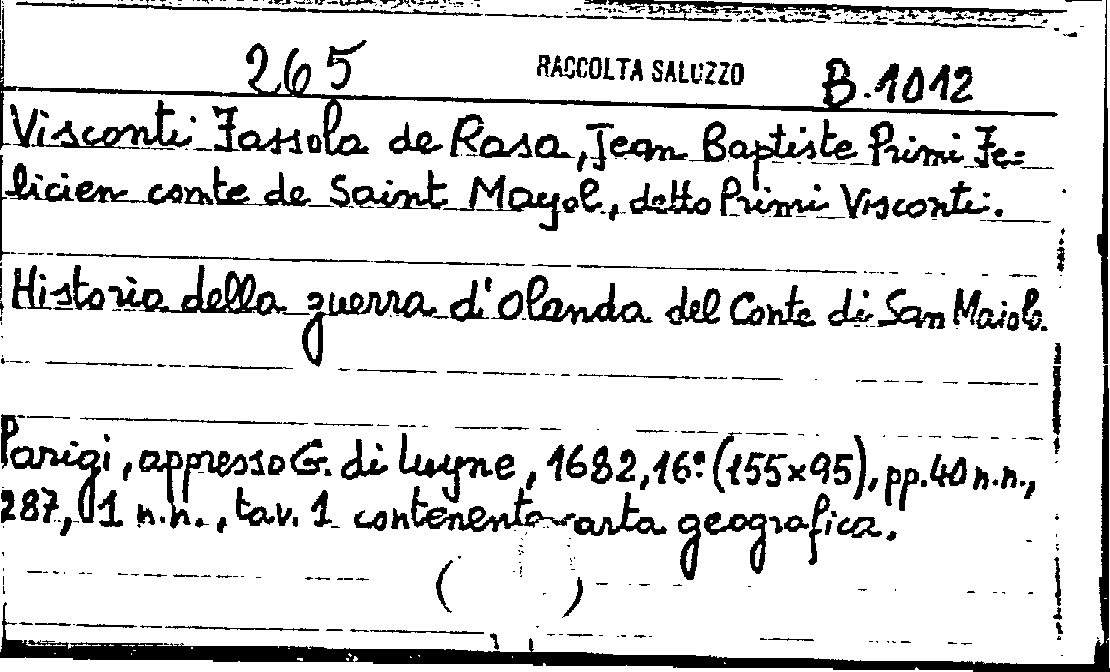 265 RACCOLTA SALUZZO B.1012
Visconti Fassola de Rasa, Jean Baptiste Primi Fe=
licien comte de Saint Mayol, detto Primi Visconti.
Historia della guerra d'Olanda del Conte di San Maiolo.
Parigi, appresso G. di Luyne, 1682, 16º (155x95), pp. 40 n.n.,
287, 1 n.n., tav. 1 contenente carta geografica.
( )